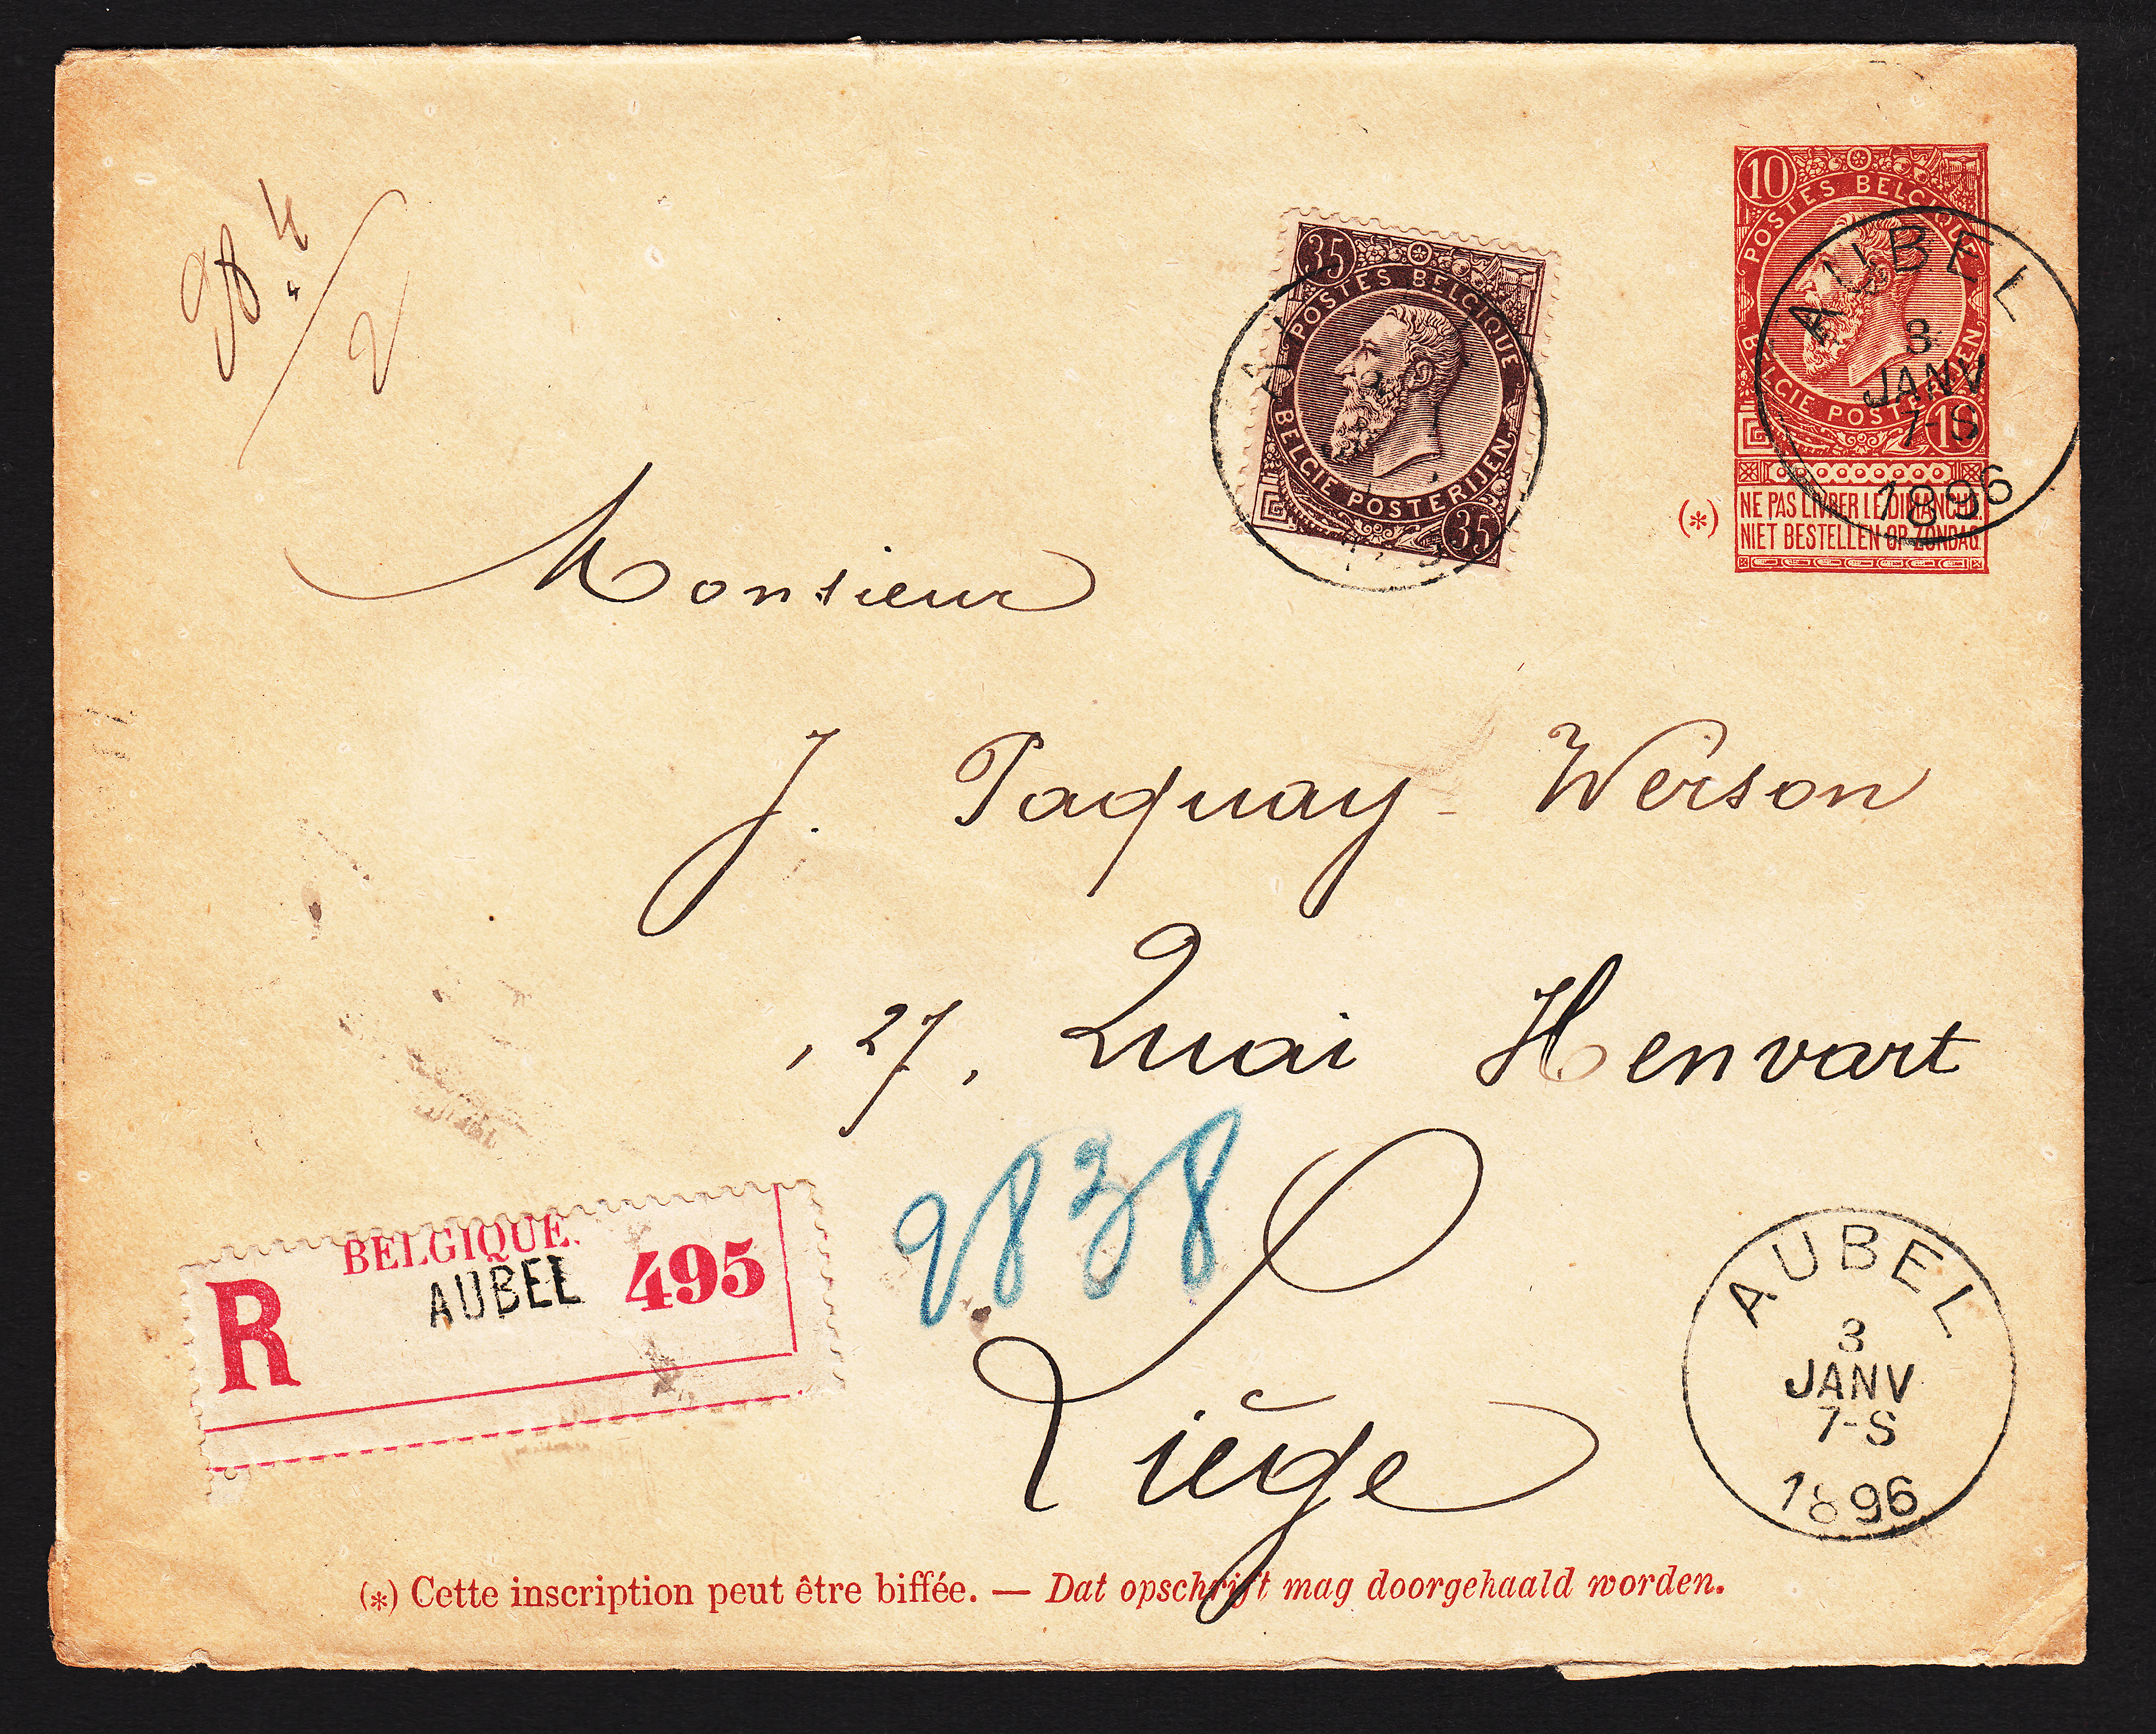 10
POSTES BELGIQUE
BELGIE POSTERIJEN
10
NE PAS LIVRER LE DIMANCHE.
NIET BESTELLEN OP ZONDAG.
(*)
AUBEL
3
JANV
7-S
1896
35
POSTES BELGIQUE
BELGIE POSTERIJEN
35
Monsieur
J. Paquay-Werson
27, Quai Henvart
2838
Liège
BELGIQUE.
R AUBEL 495
AUBEL
3
JANV
7-S
1896
(*) Cette inscription peut être biffée. — Dat opschrift mag doorgehaald worden.